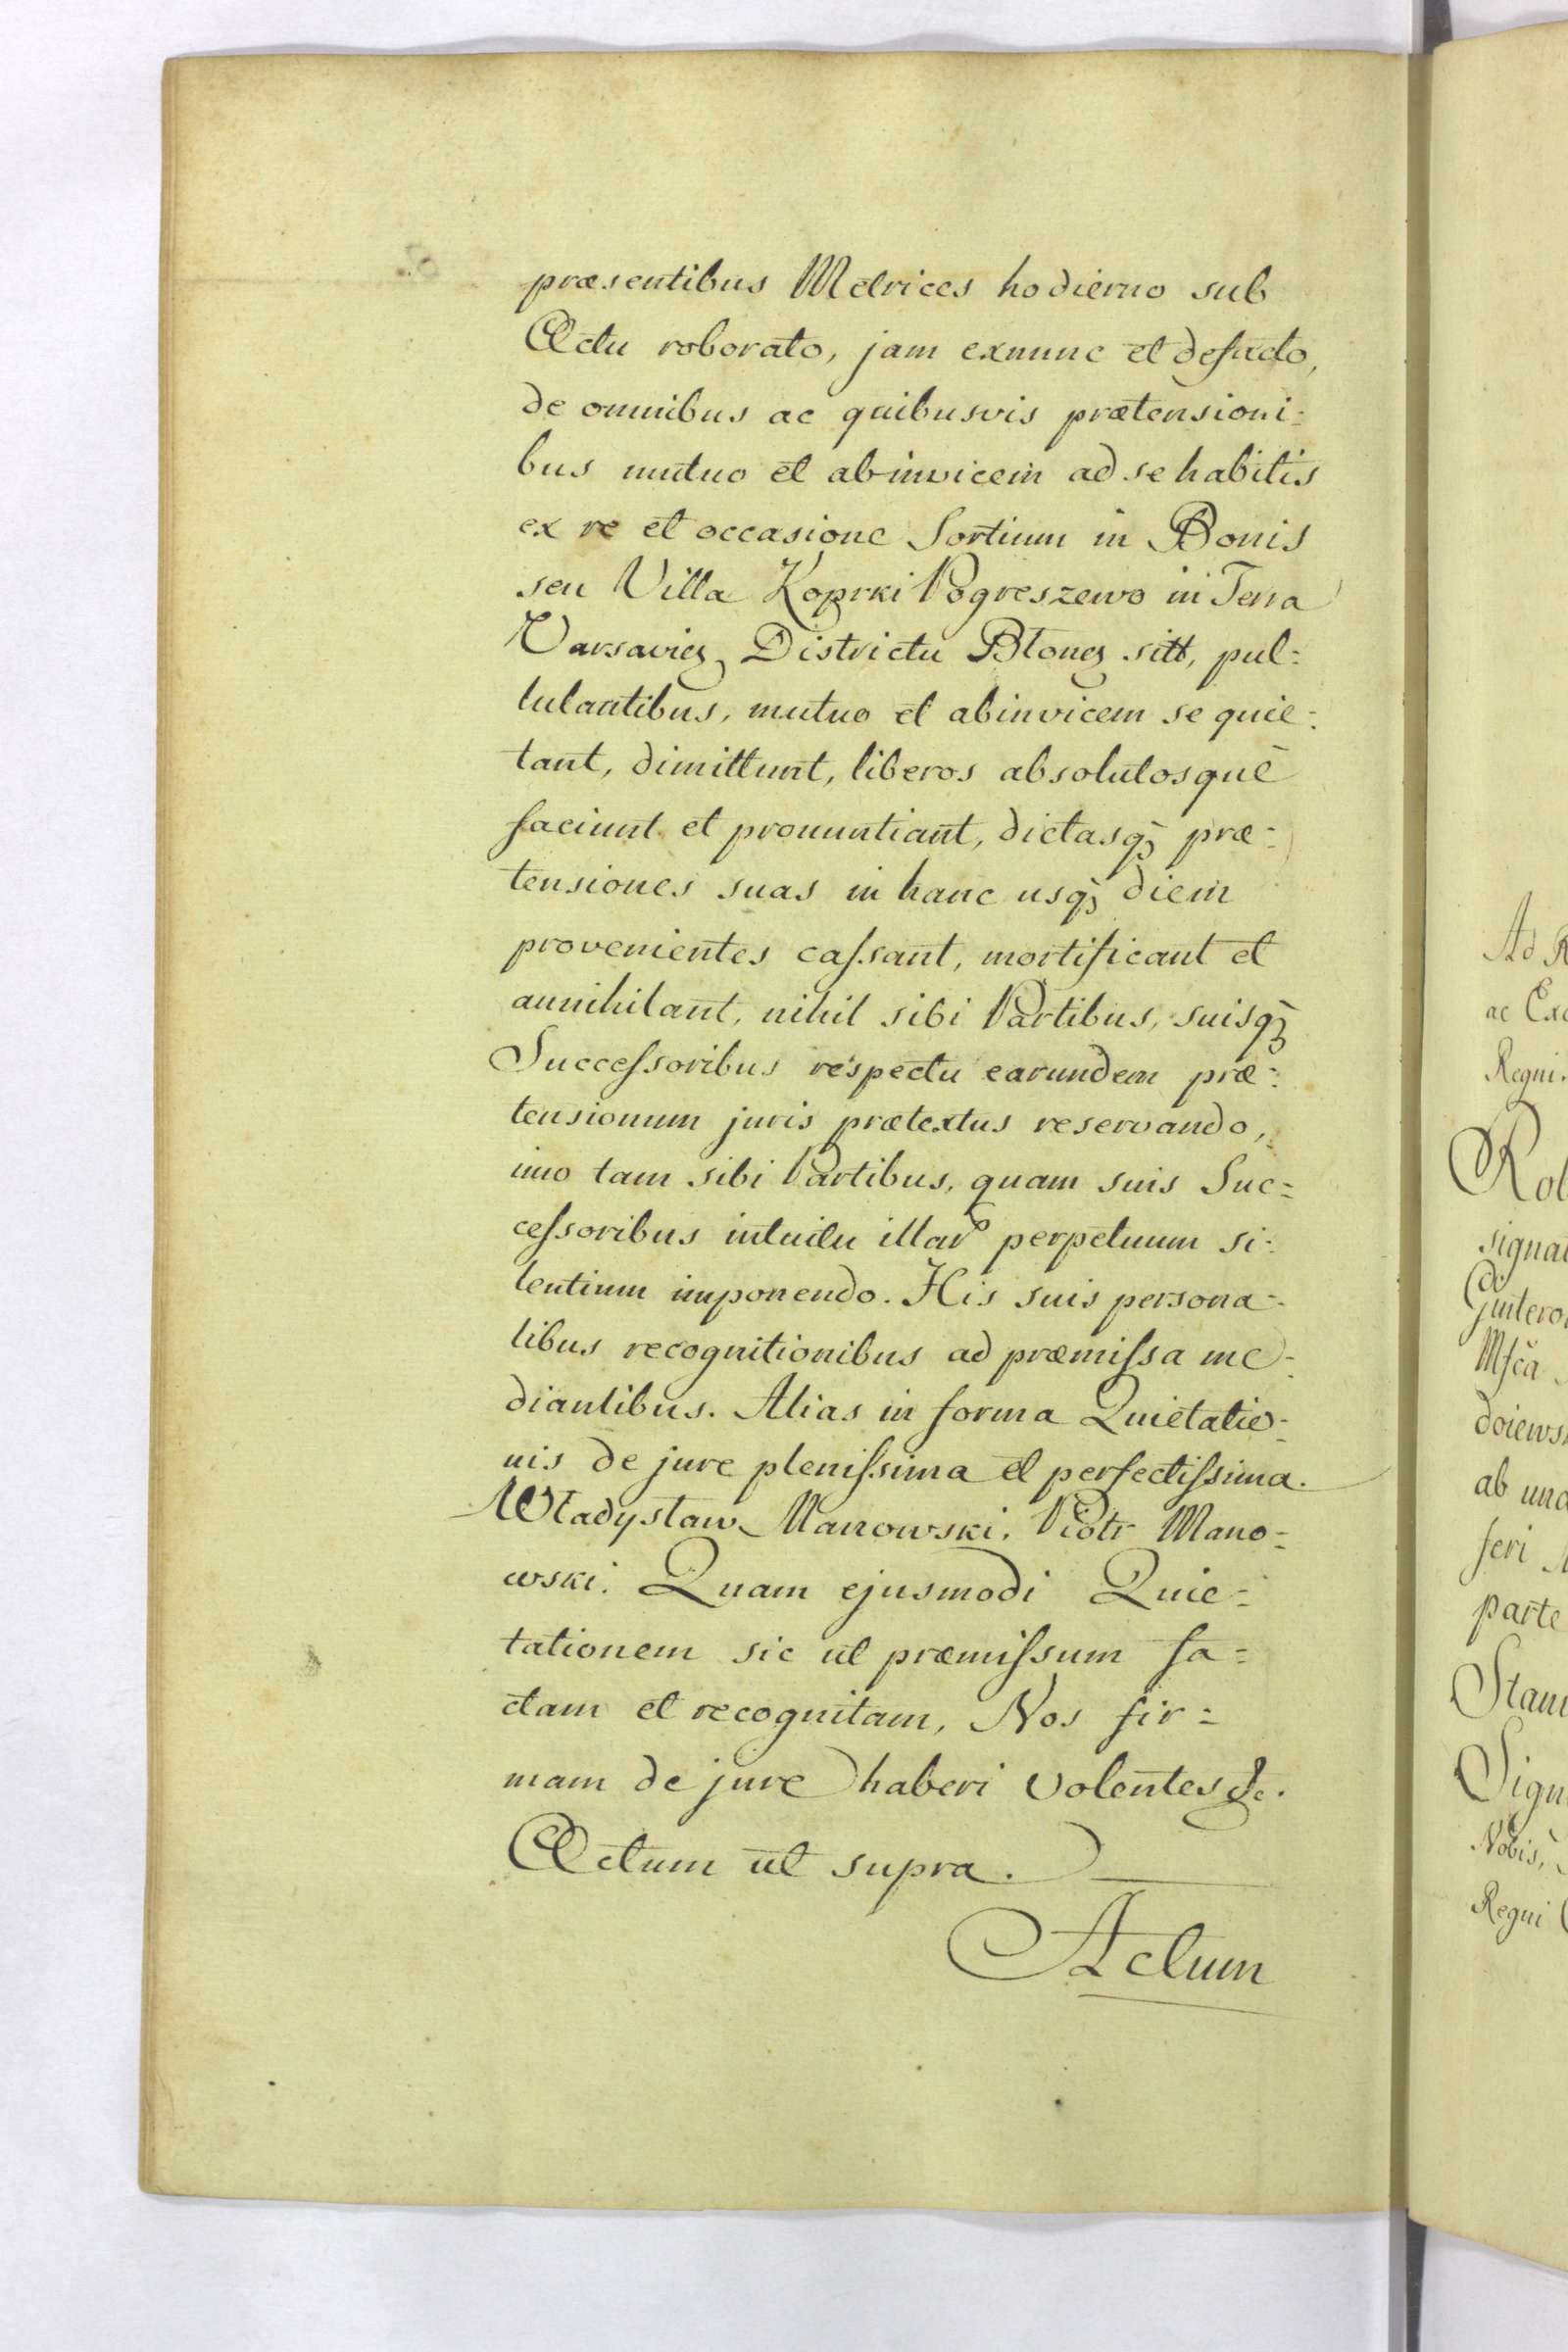 præsentibus Metrices hodierno sub
Actu roborato, jam exnunc et defacto,
de omnibus ac quibusvis prætensioni=
bus mutuo et abinvicem ad se habitis
ex re et occasione Sortium in Bonis
seu Villa Koprki Pogreszewo in Terra
Varsavieȝ Districtu Błoneȝ sitt, pul=
lulantibus, mutuo et abinvicem se quie=
tant, dimittunt, liberos absolutosquè
faciunt et pronuntiant, dictasqȝ præ=
tensiones suas in hanc usqȝ diem
provenientes caſsant, mortificant et
annihilant, nihil sibi Partibus, suisqȝ
Succeſsoribus respectu earundem præ=
tensionum juris prætextus reservando,
imo tam sibi Partibus, quam suis Suc=
ceſsoribus intuitu illar perpetuum si=
lentium imponendo. His suis persona=
libus recognitionibus ad præmiſsa me=
diantibus. Alias in forma Quietatio=
nis de jure pleniſsima et perfectiſsima.
Władysław Manowski. Piotr Mano=
wski. Quam ejusmodi Quie=
tationem sic ut præmiſsum fa=
ctam et recognitam, Nos fir=
mam de jure haberi volentes &c.
Actum ut supra.
Actum
Ad R
ac Exc
Regni.
Rob
signat
Mſca
doiews
ab una
feri
parte
Stani
Sign
Nobis,
Regni